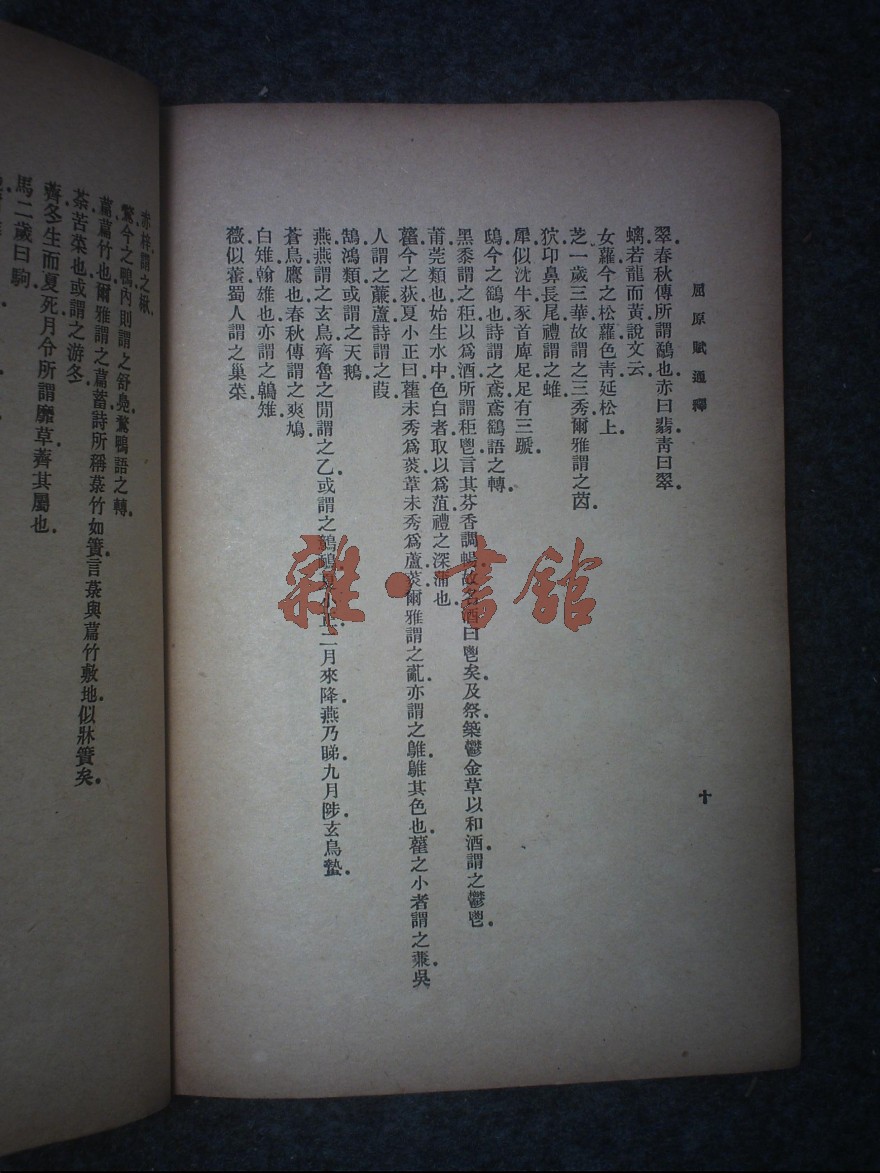 屈原賦通釋
十
翠春秋傳所謂鷸也赤曰翡青曰翠
螭若龍而黃說文云
女蘿今之松蘿色青延松上
芝一歲三華故謂之三秀爾雅謂之茵
狖卬鼻長尾禮謂之蜼
犀似沈牛豕首庳足足有三蹏
鴟今之鷂也詩謂之鳶鳶鷂語之轉
黑黍謂之秬以爲酒所謂秬鬯言其芬香調暢故名酒曰鬯矣及祭築鬱金草以和酒謂之鬱鬯
莆莞類也始生水中色白者取以爲菹禮之深蒲也
雚今之荻夏小正曰雚未秀爲菼葦未秀爲蘆菼爾雅謂之薍亦謂之鵻鵻其色也雚之小者謂之蒹吳
人謂之蒹蘆詩謂之葭
鵠鴻類或謂之天鵝
燕燕謂之玄鳥齊魯之閒謂之乙或謂之鷾鴯夏小正二月來降燕乃睇九月陟玄鳥蟄
蒼鳥鷹也春秋傳謂之爽鳩
白雉翰雉也亦謂之鵫雉
薇似藿蜀人謂之巢菜
赤梓謂之楸
鶩今之鴨內則謂之舒鳧鶩鴨語之轉
萹萹竹也爾雅謂之萹蓄詩所稱菉竹如簀言菉與萹竹敷地似牀簀矣
荼苦菜也或謂之游冬
薺冬生而夏死月令所謂靡草薺其屬也
馬二歲曰駒
雜·書館